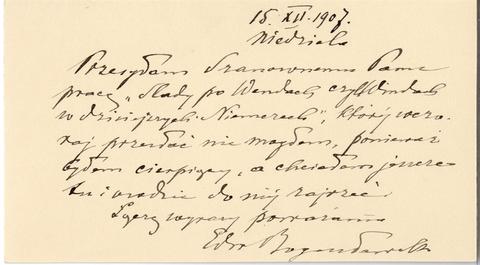 15. XII. 1907.
Niedziela
Przesyłam Szanownemu Panu
pracę „Ślady po Wendach czyli Windach
w dzisiejszych Niemczech”, który wczo-
raj przesłać nie mogłem, ponieważ
byłem cierpiący, a chciałem jeszcze
tu i owdzie do niej zajrzeć.
Łączę wyrazy poważania
Edw. Bogusławski